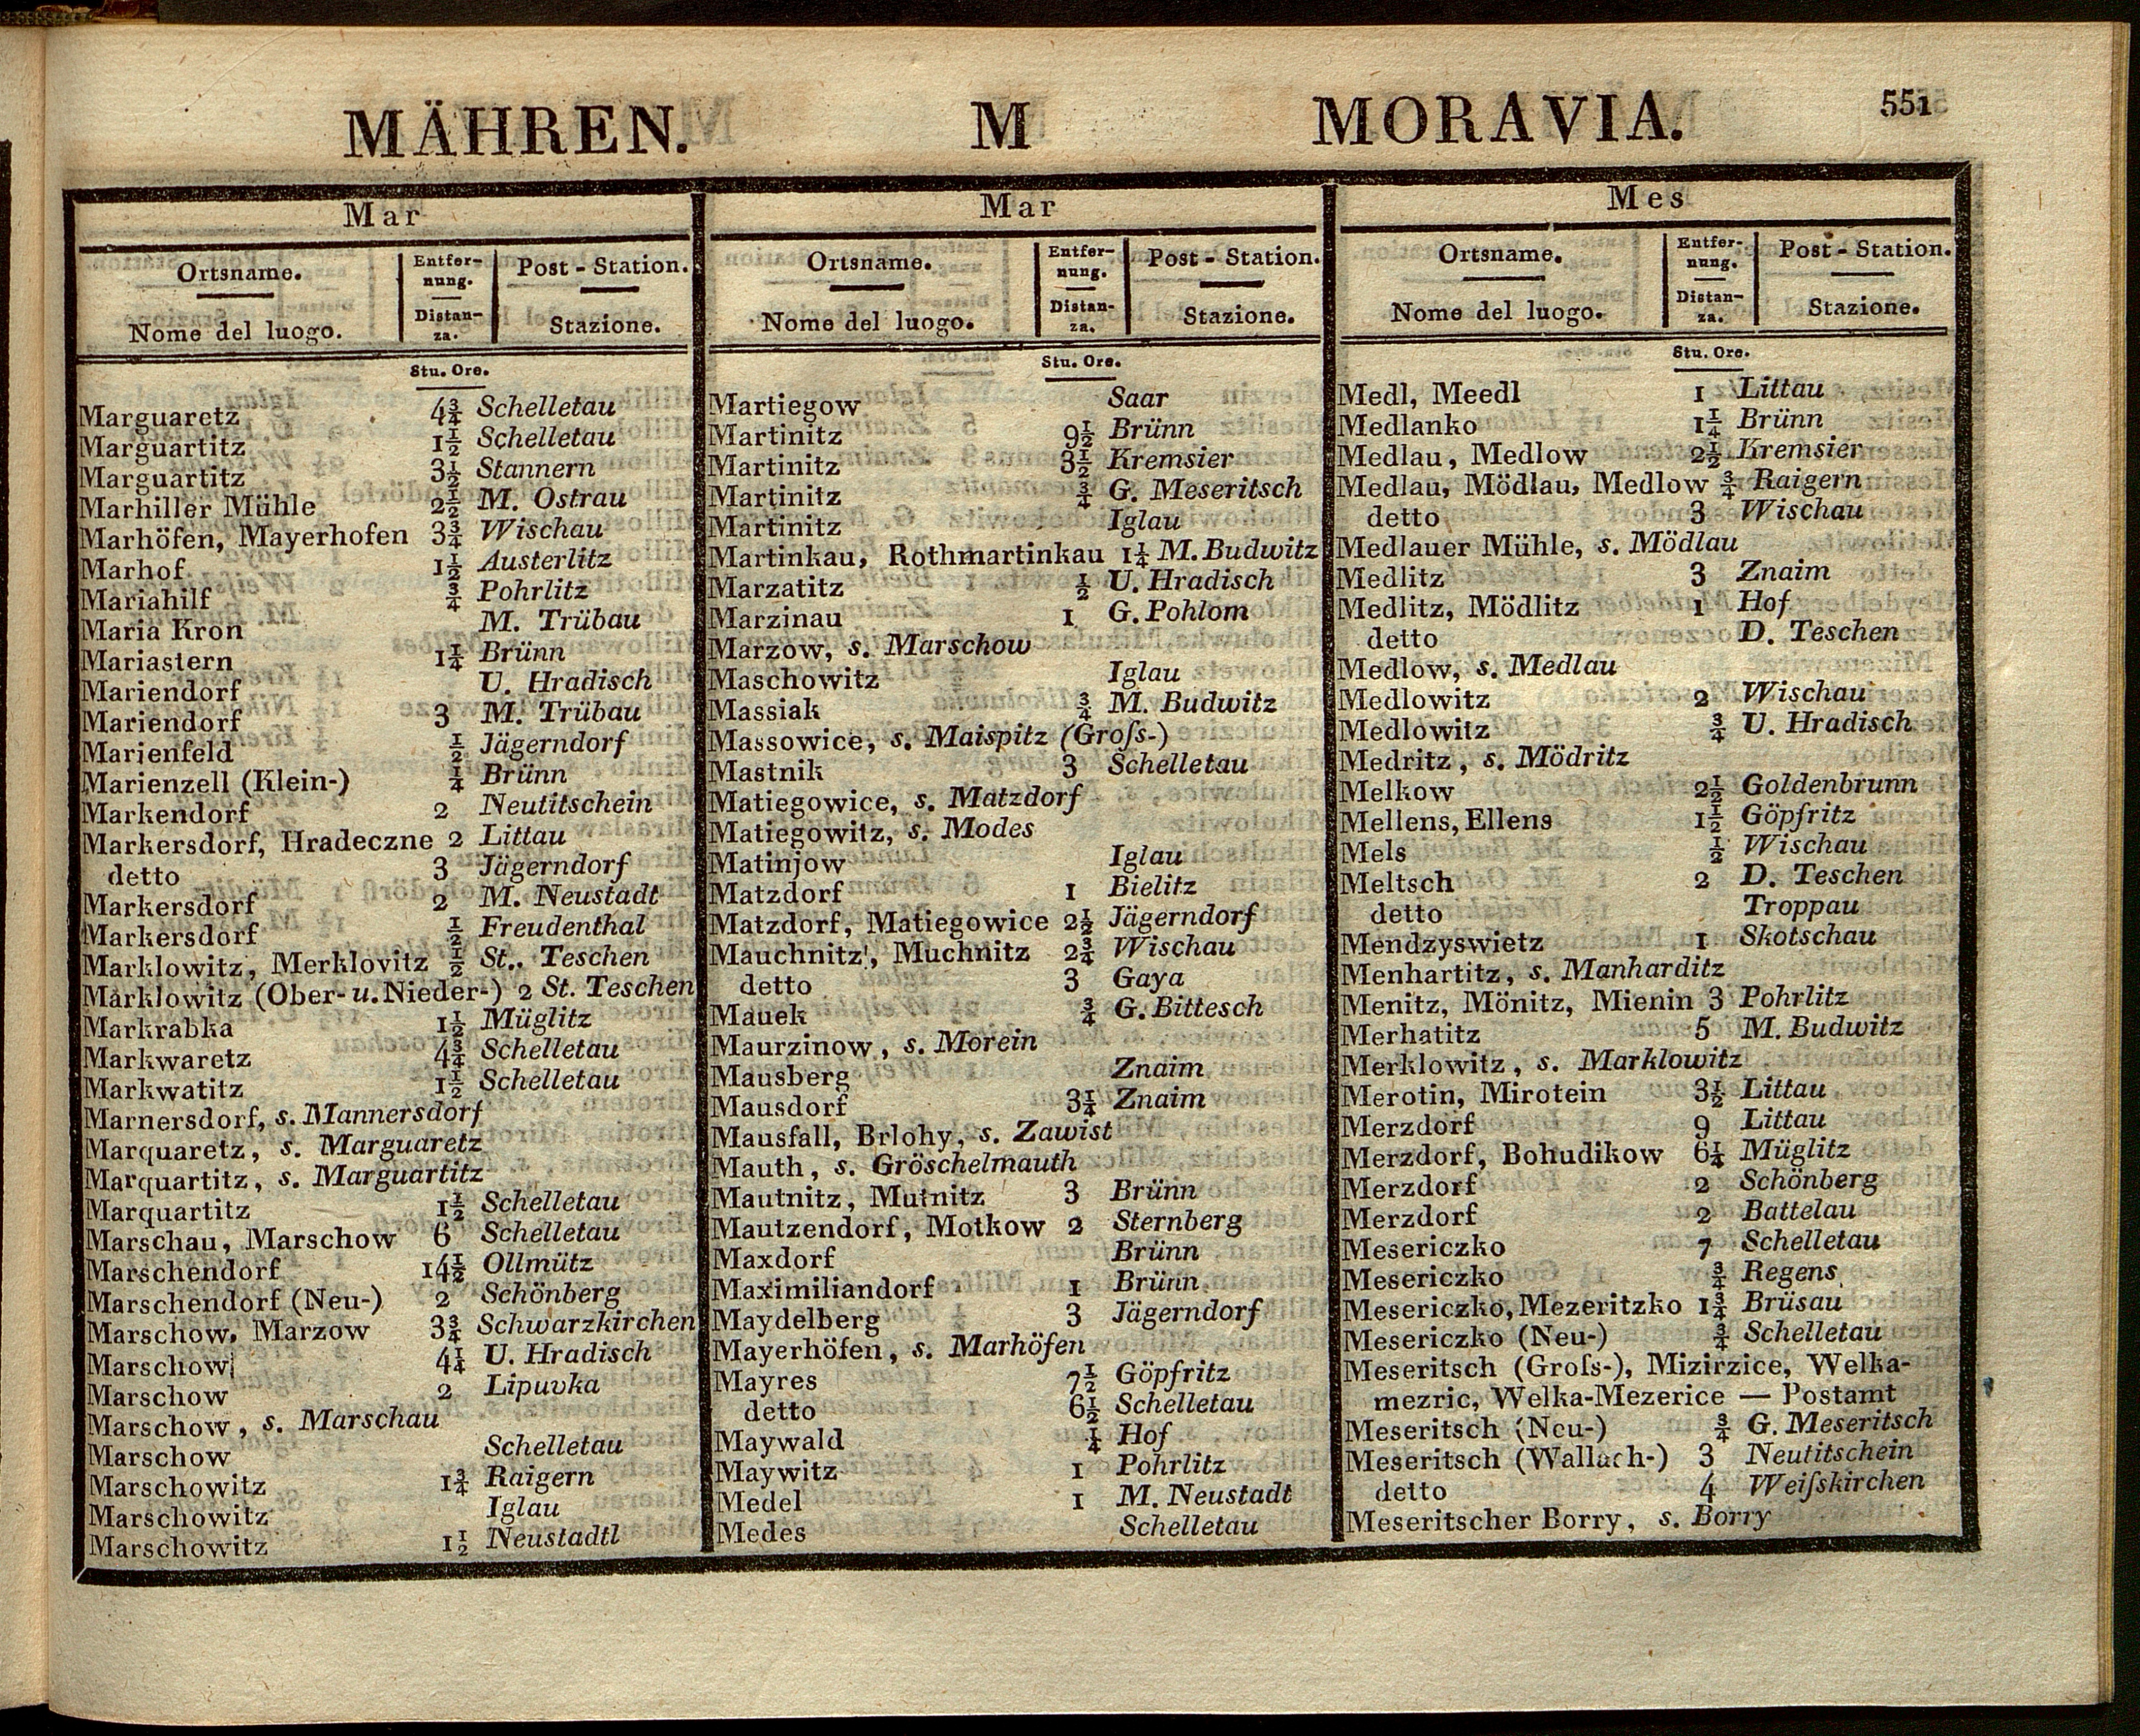 MÄHREN. M MORAVIA. 551
Mar
Ortsname. Entfer-nung. Post-Station.
Nome del luogo. Distan-za. Stazione.
Stu. Ore.
Marguaretz 4¾ Schelletau
Marguartitz 1½ Schelletau
Marguartitz 3½ Stannern
Marhiller Mühle 2½ M. Ostrau
Marhöfen, Mayerhofen 3¾ Wischau
Marhof 1½ Austerlitz
Mariahilf ¾ Pohrlitz
Maria Kron M. Trübau
Mariastern 1¼ Brünn
Mariendorf U. Hradisch
Mariendorf 3 M. Trübau
Marienfeld ½ Jägerndorf
Marienzell (Klein-) ¼ Brünn
Markendorf 2 Neutitschein
Markersdorf, Hradeczne 2 Littau
detto 3 Jägerndorf
Markersdorf 2 M. Neustadt
Markersdorf ½ Freudenthal
Marklowitz, Merklovitz ½ St. Teschen
Marklowitz (Ober- u. Nieder-) 2 St. Teschen
Markrabka 1½ Müglitz
Markwaretz 4¾ Schelletau
Markwatitz 1½ Schelletau
Marnersdorf, s. Mannersdorf
Marquaretz, s. Marguaretz
Marquartitz, s. Marguartitz
Marquartitz 1½ Schelletau
Marschau, Marschow 6 Schelletau
Marschendorf 14½ Ollmütz
Marschendorf (Neu-) 2 Schönberg
Marschow, Marzow 3¾ Schwarzkirchen
Marschow 4¼ U. Hradisch
Marschow 2 Lipuvka
Marschow, s. Marschau
Marschow Schelletau
Marschowitz 1¾ Raigern
Marschowitz Iglau
Marschowitz 1½ Neustadtl
Mar
Ortsname. Entfer-nung. Post-Station.
Nome del luogo. Distan-za. Stazione.
Stu. Ore.
Martiegow Saar
Martinitz 9½ Brünn
Martinitz 3½ Kremsier
Martinitz ¾ G. Meseritsch
Martinitz Iglau
Martinkau, Rothmartinkau 1¼ M. Budwitz
Marzatitz ½ U. Hradisch
Marzinau 1 G. Pohlom
Marzow, s. Marschow
Maschowitz Iglau
Massiak ¾ M. Budwitz
Massowice, s. Maispitz (Groſs-)
Mastnik 3 Schelletau
Matiegowice, s. Matzdorf
Matiegowitz, s. Modes
Matinjow Iglau
Matzdorf 1 Bielitz
Matzdorf, Matiegowice 2½ Jägerndorf
Mauchnitz, Muchnitz 2¾ Wischau
detto 3 Gaya
Mauek ¾ G. Bittesch
Maurzinow, s. Morein
Mausberg Znaim
Mausdorf 3¼ Znaim
Mausfall, Brlohy, s. Zawist
Mauth, s. Gröschelmauth
Mautnitz, Mutnitz 3 Brünn
Mautzendorf, Motkow 2 Sternberg
Maxdorf Brünn
Maximiliandorf 1 Brünn
Maydelberg 3 Jägerndorf
Mayerhöfen, s. Marhöfen
Mayres 7½ Göpfritz
detto 6½ Schelletau
Maywald ¼ Hof
Maywitz 1 Pohrlitz
Medel 1 M. Neustadt
Medes Schelletau
Mes
Ortsname. Entfer-nung. Post-Station.
Nome del luogo. Distan-za. Stazione.
Stu. Ore.
Medl, Meedl 1 Littau
Medlanko 1¼ Brünn
Medlau, Medlow 2½ Kremsier
Medlau, Mödlau, Medlow ¾ Raigern
detto 3 Wischau
Medlauer Mühle, s. Mödlau
Medlitz 3 Znaim
Medlitz, Mödlitz 1 Hof
detto D. Teschen
Medlow, s. Medlau
Medlowitz 2 Wischau
Medlowitz ¾ U. Hradisch
Medritz, s. Mödritz
Melkow 2½ Goldenbrunn
Mellens, Ellens 1½ Göpfritz
Mels ½ Wischau
Meltsch 2 D. Teschen
detto Troppau
Mendzyswietz 1 Skotschau
Menhartitz, s. Manharditz
Menitz, Mönitz, Mienin 3 Pohrlitz
Merhatitz 5 M. Budwitz
Merklowitz, s. Marklowitz
Merotin, Mirotein 3½ Littau
Merzdorf 9 Littau
Merzdorf, Bohudikow 6¼ Müglitz
Merzdorf 2 Schönberg
Merzdorf 2 Battelau
Mesericzko 7 Schelletau
Mesericzko ¾ Regens
Mesericzko, Mezeritzko 1¾ Brüsau
Mesericzko (Neu-) ¾ Schelletau
Meseritsch (Groſs-), Mizirzice, Welka-
mezric, Welka-Mezerice — Postamt
Meseritsch (Neu-) ¾ G. Meseritsch
Meseritsch (Wallach-) 3 Neutitschein
detto 4 Weiſskirchen
Meseritscher Borry, s. Borry